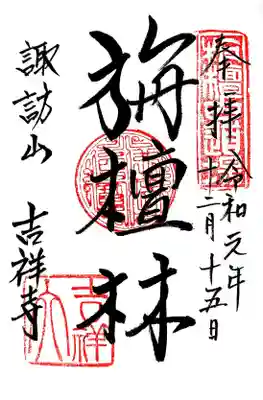 奉拝 令和元年
十二月十五日
旃檀林
諏訪山 吉祥寺